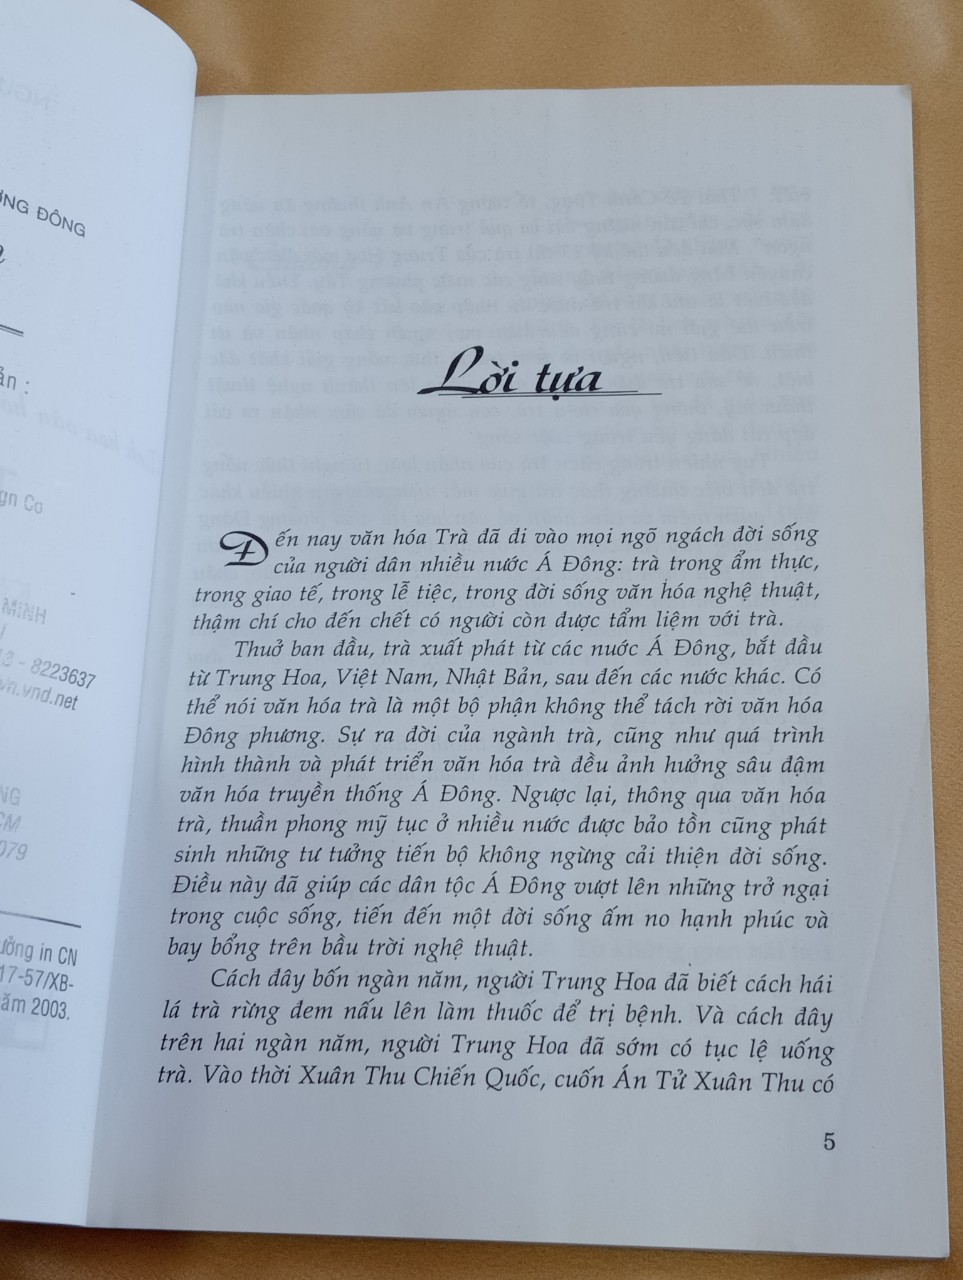 ƠNG ĐÔNG
ản :
gn Co
MINH
8223637
wn.vnd.net
NG
CM
079
ưởng in CN
17-57/XB-
năm 2003.
Lời tựa
Đến nay văn hóa Trà đã đi vào mọi ngõ ngách đời sống
của người dân nhiều nước Á Đông: trà trong ẩm thực,
trong giao tế, trong lễ tiệc, trong đời sống văn hóa nghệ thuật,
thậm chí cho đến chết có người còn được tẩm liệm với trà.
Thuở ban đầu, trà xuất phát từ các nước Á Đông, bắt đầu
từ Trung Hoa, Việt Nam, Nhật Bản, sau đến các nước khác. Có
thể nói văn hóa trà là một bộ phận không thể tách rời văn hóa
Đông phương. Sự ra đời của ngành trà, cũng như quá trình
hình thành và phát triển văn hóa trà đều ảnh hưởng sâu đậm
văn hóa truyền thống Á Đông. Ngược lại, thông qua văn hóa
trà, thuần phong mỹ tục ở nhiều nước được bảo tồn cũng phát
sinh những tư tưởng tiến bộ không ngừng cải thiện đời sống.
Điều này đã giúp các dân tộc Á Đông vượt lên những trở ngại
trong cuộc sống, tiến đến một đời sống ấm no hạnh phúc và
bay bổng trên bầu trời nghệ thuật.
Cách đây bốn ngàn năm, người Trung Hoa đã biết cách hái
lá trà rừng đem nấu lên làm thuốc để trị bệnh. Và cách đây
trên hai ngàn năm, người Trung Hoa đã sớm có tục lệ uống
trà. Vào thời Xuân Thu Chiến Quốc, cuốn Án Tử Xuân Thu có
5